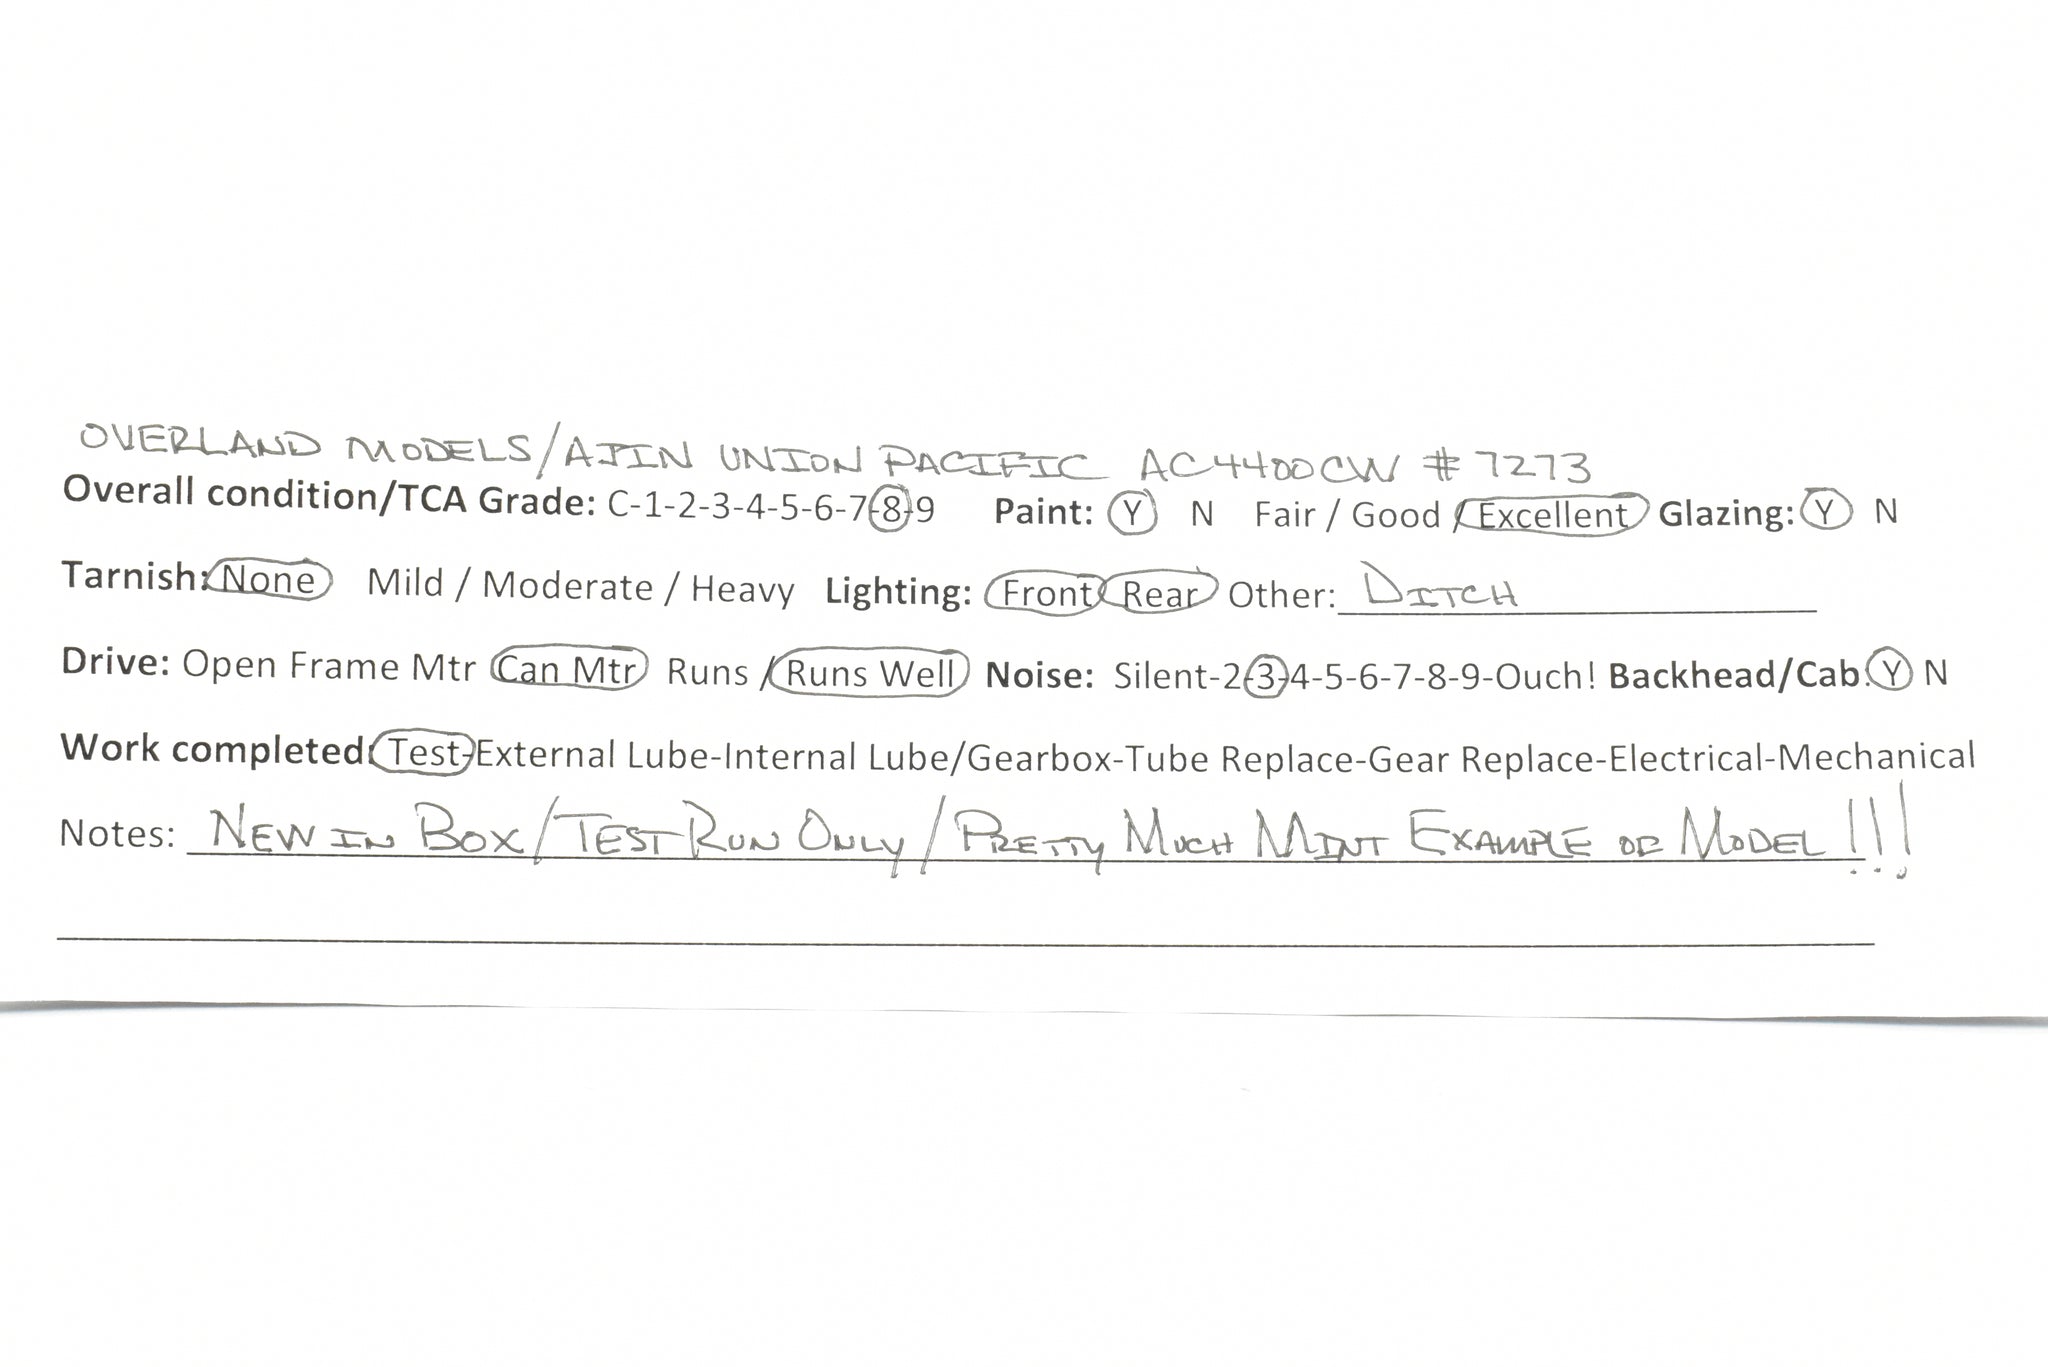 OVERLAND MODELS/AJIN UNION PACIFIC AC4400CW #7273
Overall condition/TCA Grade: C-1-2-3-4-5-6-7-8-9 Paint: Y N Fair / Good / Excellent Glazing: Y N
Tarnish: None Mild / Moderate / Heavy Lighting: Front Rear Other: DITCH
Drive: Open Frame Mtr Can Mtr Runs / Runs Well Noise: Silent-2-3-4-5-6-7-8-9-Ouch! Backhead/Cab: Y N
Work completed: Test-External Lube-Internal Lube/Gearbox-Tube Replace-Gear Replace-Electrical-Mechanical
Notes: NEW IN BOX/TEST RUN ONLY/PRETTY MUCH MINT EXAMPLE OF MODEL!!!